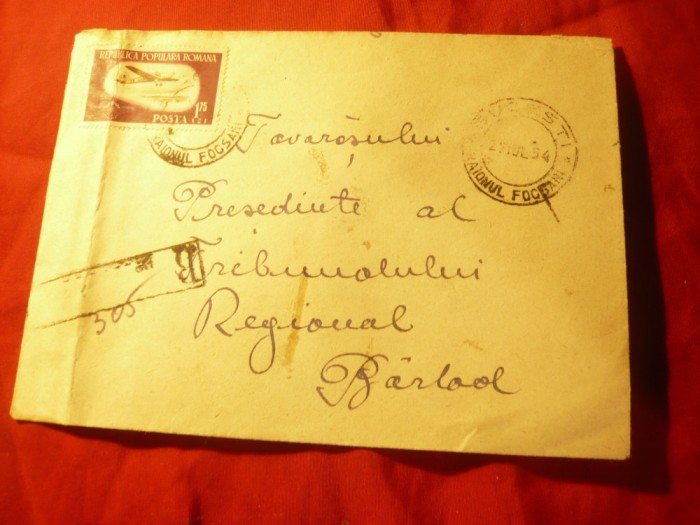 REPUBLICA POPULARA ROMANA
POSTA 1.75 LEI
RAIONUL FOCSANI
27 IUL. 54
RAIONUL FOCSANI
Tovarășului
Președinte al
Tribunalului
Regional
Bârlad
R
505